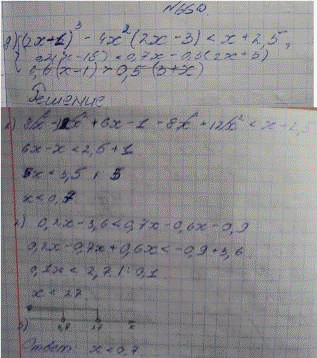 №660
д) (2x-1)³ - 4x²(2x-3) < x + 2,5,
0,2(x-18) < 0,7x - 0,3(2x+3)
0,6(x-1) > 0,5(3+x)
Решение
8x³ - 12x² + 6x - 1 - 8x³ + 12x² < x + 2,5
6x - x < 2,5 + 1
5x < 3,5 : 5
x < 0,7
0,2x - 3,6 < 0,7x - 0,6x - 0,9
0,2x - 0,7x + 0,6x < -0,9 + 3,6
0,1x < 2,7 : 0,1
x < 27
0,7 27 x
Ответ: x < 0,7